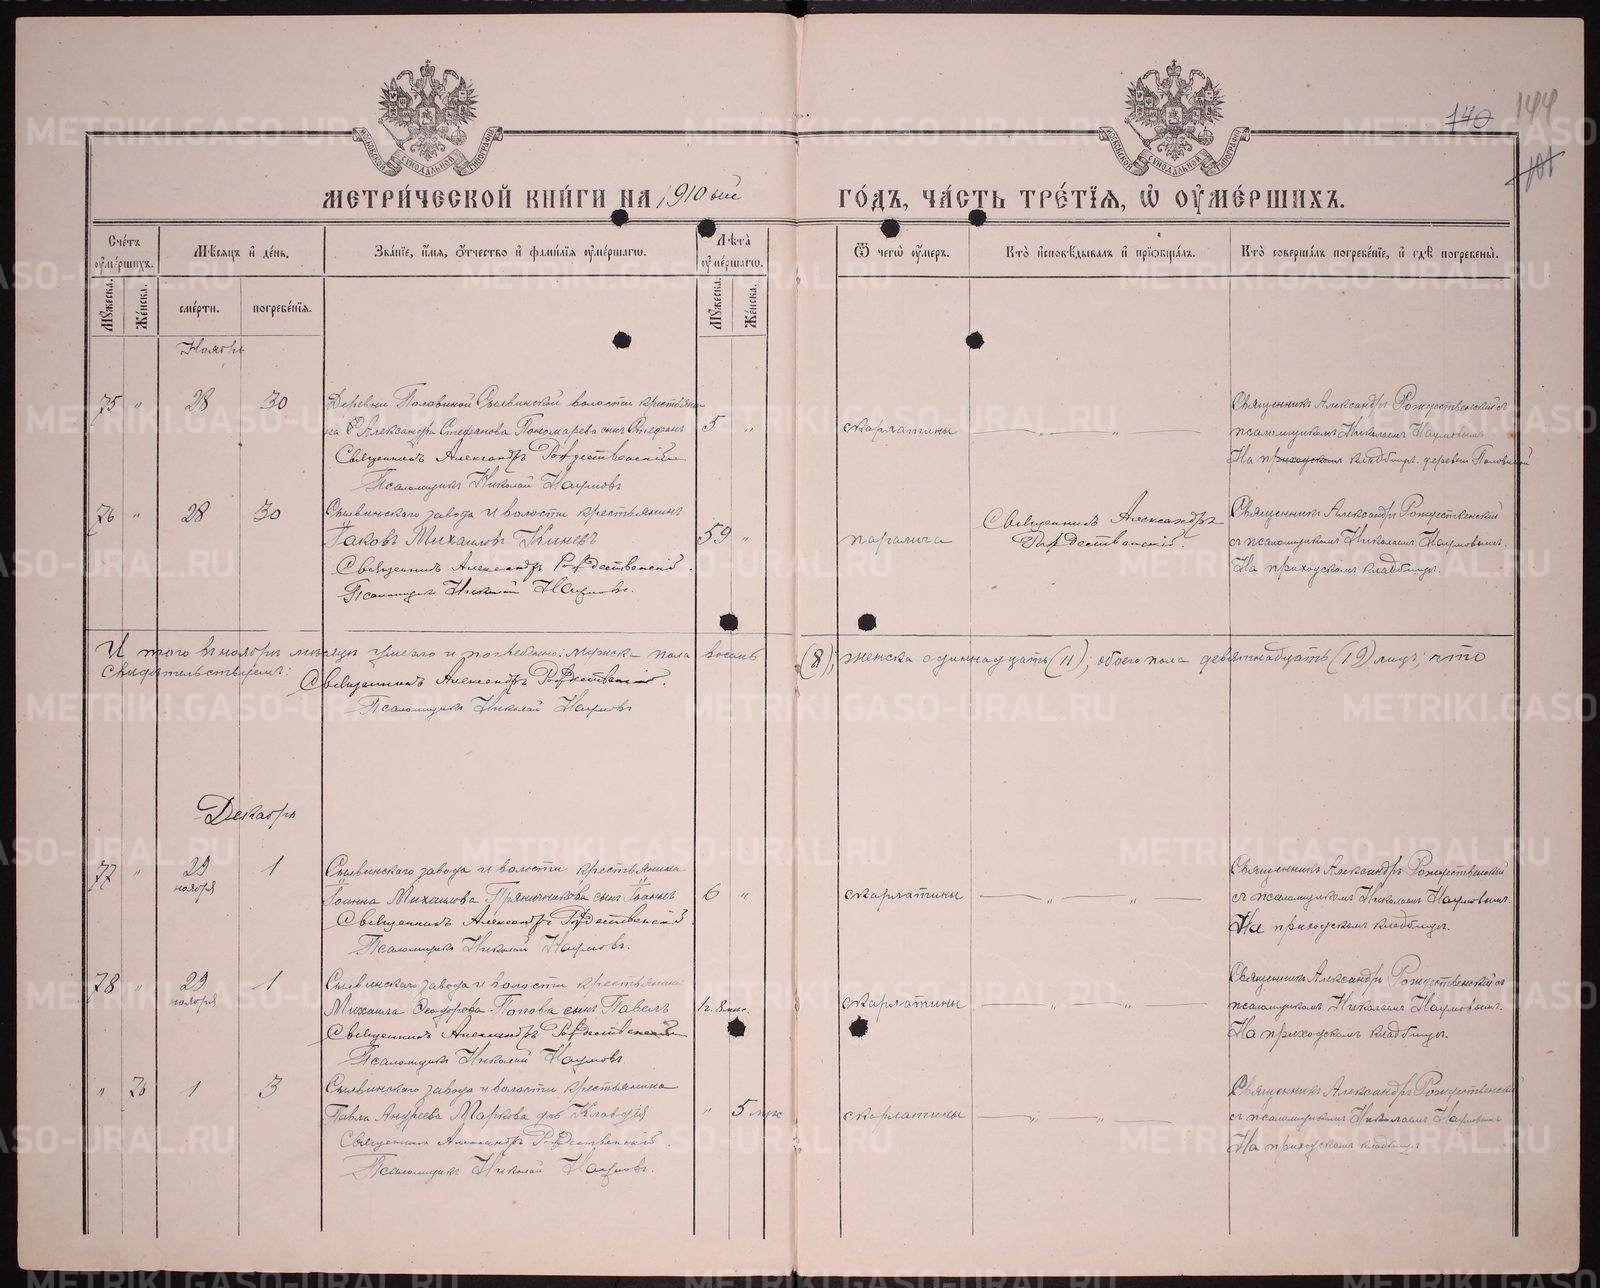 140 144
101
МОСКОВСКОЙ СѴНОДАЛЬНОЙ ТИПОГРАФІИ
МОСКОВСКОЙ СѴНОДАЛЬНОЙ ТИПОГРАФІИ
МЕТРИ́ЧЕСКОЙ КНИ́ГИ НА 1910 ый ГО́ДЪ, ЧА́СТЬ ТРЕ́ТІѦ, Ѡ ОУМЕ́РШИХЪ.
Сче́тъ оуме́ршихъ.
Мѣ́сѧцъ и де́нь.
Зва́ніе, и́мѧ, ѻ́тчество и фами́ліѧ оуме́ршагѡ.
Лѣ́та оуме́ршагѡ.
Ѿ чегѡ̀ оу́меръ.
Кто̀ и҆сповѣ́дывалъ и прїѡбща́лъ.
Кто̀ соверша́лъ погребе́ніе, и гдѣ̀ погребены̀.
Мꙋ́жеска. Же́нска. сме́рти. погребе́ніѧ. Мꙋ́жеска. Же́нска.
Ноябрь
75 " 28 30 Деревни Половиной Сылвинской волости крестьяни-
на Александра Стефанова Пономарева сынъ Стефанъ 5 " скарлатины
Священникъ Александръ Рождественскій
Псаломщикъ Николай Наумовъ
Священникъ Александръ Рождественскій съ
псаломщикомъ Николаемъ Наумовымъ.
На приходскомъ кладбищѣ деревни Половиной
76 " 28 30 Сылвинскаго завода и волости крестьянинъ
Іаковъ Михаиловъ 59 " паралича
Священникъ Александръ Рождественскій.
Псаломщикъ Николай Наумовъ.
Священникъ Александръ
Рождественскій.
Священникъ Александръ Рождественскій
съ псаломщикомъ Николаемъ Наумовымъ.
На приходскомъ кладбищѣ.
И того въ ноябрѣ мѣсяцѣ умерло и погребено: мужска пола восемь (8), женска одиннадцать (11); обоего пола девятнадцать (19) лицъ; что
свидѣтельствуемъ:
Священникъ Александръ Рождественскій.
Псаломщикъ Николай Наумовъ
Декабрь
77 " 29 ноября 1 Сылвинскаго завода и волости крестьянина
Іоанна Михаилова Пряничникова сынъ Іоаннъ 6 " скарлатины
Священникъ Александръ Рождественскій.
Псаломщикъ Николай Наумовъ.
Священникъ Александръ Рождественскій
съ псаломщикомъ Николаемъ Наумовымъ.
На приходскомъ кладбищѣ.
78 " 29 ноября 1 Сылвинскаго завода и волости крестьянина
Михаила Ѳеодорова Попова сынъ Павелъ 1 г. 8 мѣс. скарлатины
Священникъ Александръ Рождественскій
Псаломщикъ Николай Наумовъ.
Священникъ Александръ Рождественскій съ
псаломщикомъ Николаемъ Наумовымъ.
На приходскомъ кладбищѣ.
" 1 3 Сылвинскаго завода и волости крестьянина
Павла Андреева Маркова дочь Клавдія " 5 мѣс скарлатины
Священникъ Александръ Рождественскій.
Псаломщикъ Николай Наумовъ.
Священникъ Александръ Рождественскій
съ псаломщикомъ Николаемъ Наумовымъ
На приходскомъ кладбищѣ
METRIKI.GASO-URAL.RU